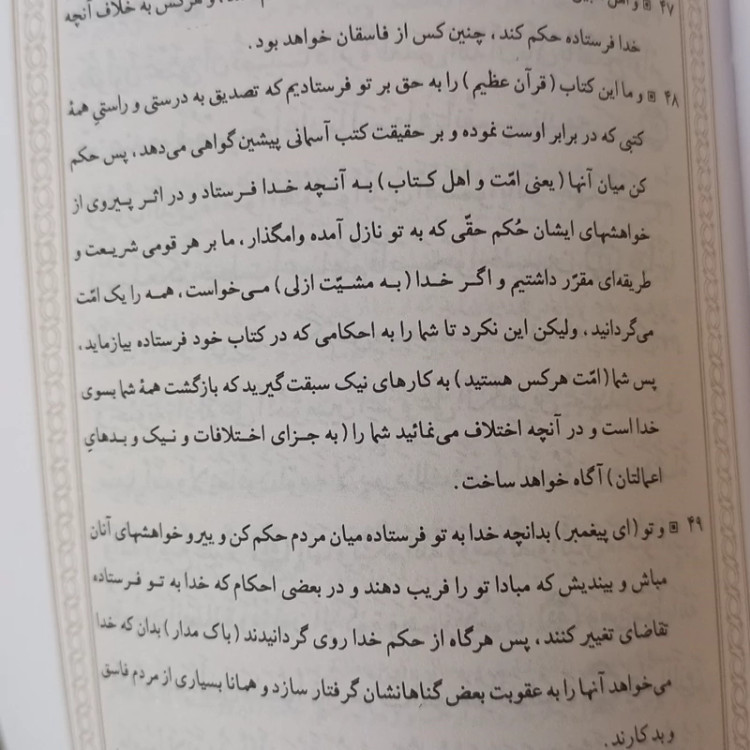 ۴۷ ▣ و اهل ... و هرکس به خلاف آنچه
خدا فرستاده حکم کند، چنین کس از فاسقان خواهد بود.
۴۸ ▣ و ما این کتاب (قرآن عظیم) را به حق بر تو فرستادیم که تصدیق به درستی و راستیِ همهٔ
کتبی که در برابر اوست نموده و بر حقیقت کتب آسمانی پیشین گواهی می‌دهد، پس حکم
کن میان آنها (یعنی امّت و اهل کتاب) به آنچه خدا فرستاد و در اثر پیروی از
خواهشهای ایشان حُکم حقّی که به تو نازل آمده وامگذار، ما بر هر قومی شریعت و
طریقه‌ای مقرّر داشتیم و اگر خدا (به مشیّت ازلی) می‌خواست، همه را یک امّت
می‌گردانید، ولیکن این نکرد تا شما را به احکامی که در کتاب خود فرستاده بیازماید،
پس شما (امّت هرکس هستید) به کارهای نیک سبقت گیرید که بازگشت همهٔ شما بسوی
خدا است و در آنچه اختلاف می‌نمائید شما را (به جزای اختلافات و نیک و بدهایِ
اعمالتان) آگاه خواهد ساخت.
۴۹ ▣ و تو (ای پیغمبر) بدانچه خدا به تو فرستاده میان مردم حکم کن و پیرو خواهشهای آنان
مباش و بیندیش که مبادا تو را فریب دهند و در بعضی احکام که خدا به تو فرستاده
تقاضای تغییر کنند، پس هرگاه از حکم خدا روی گردانیدند (باک مدار) بدان که خدا
می‌خواهد آنها را به عقوبت بعض گناهانشان گرفتار سازد و همانا بسیاری از مردم فاسق
و بدکارند.